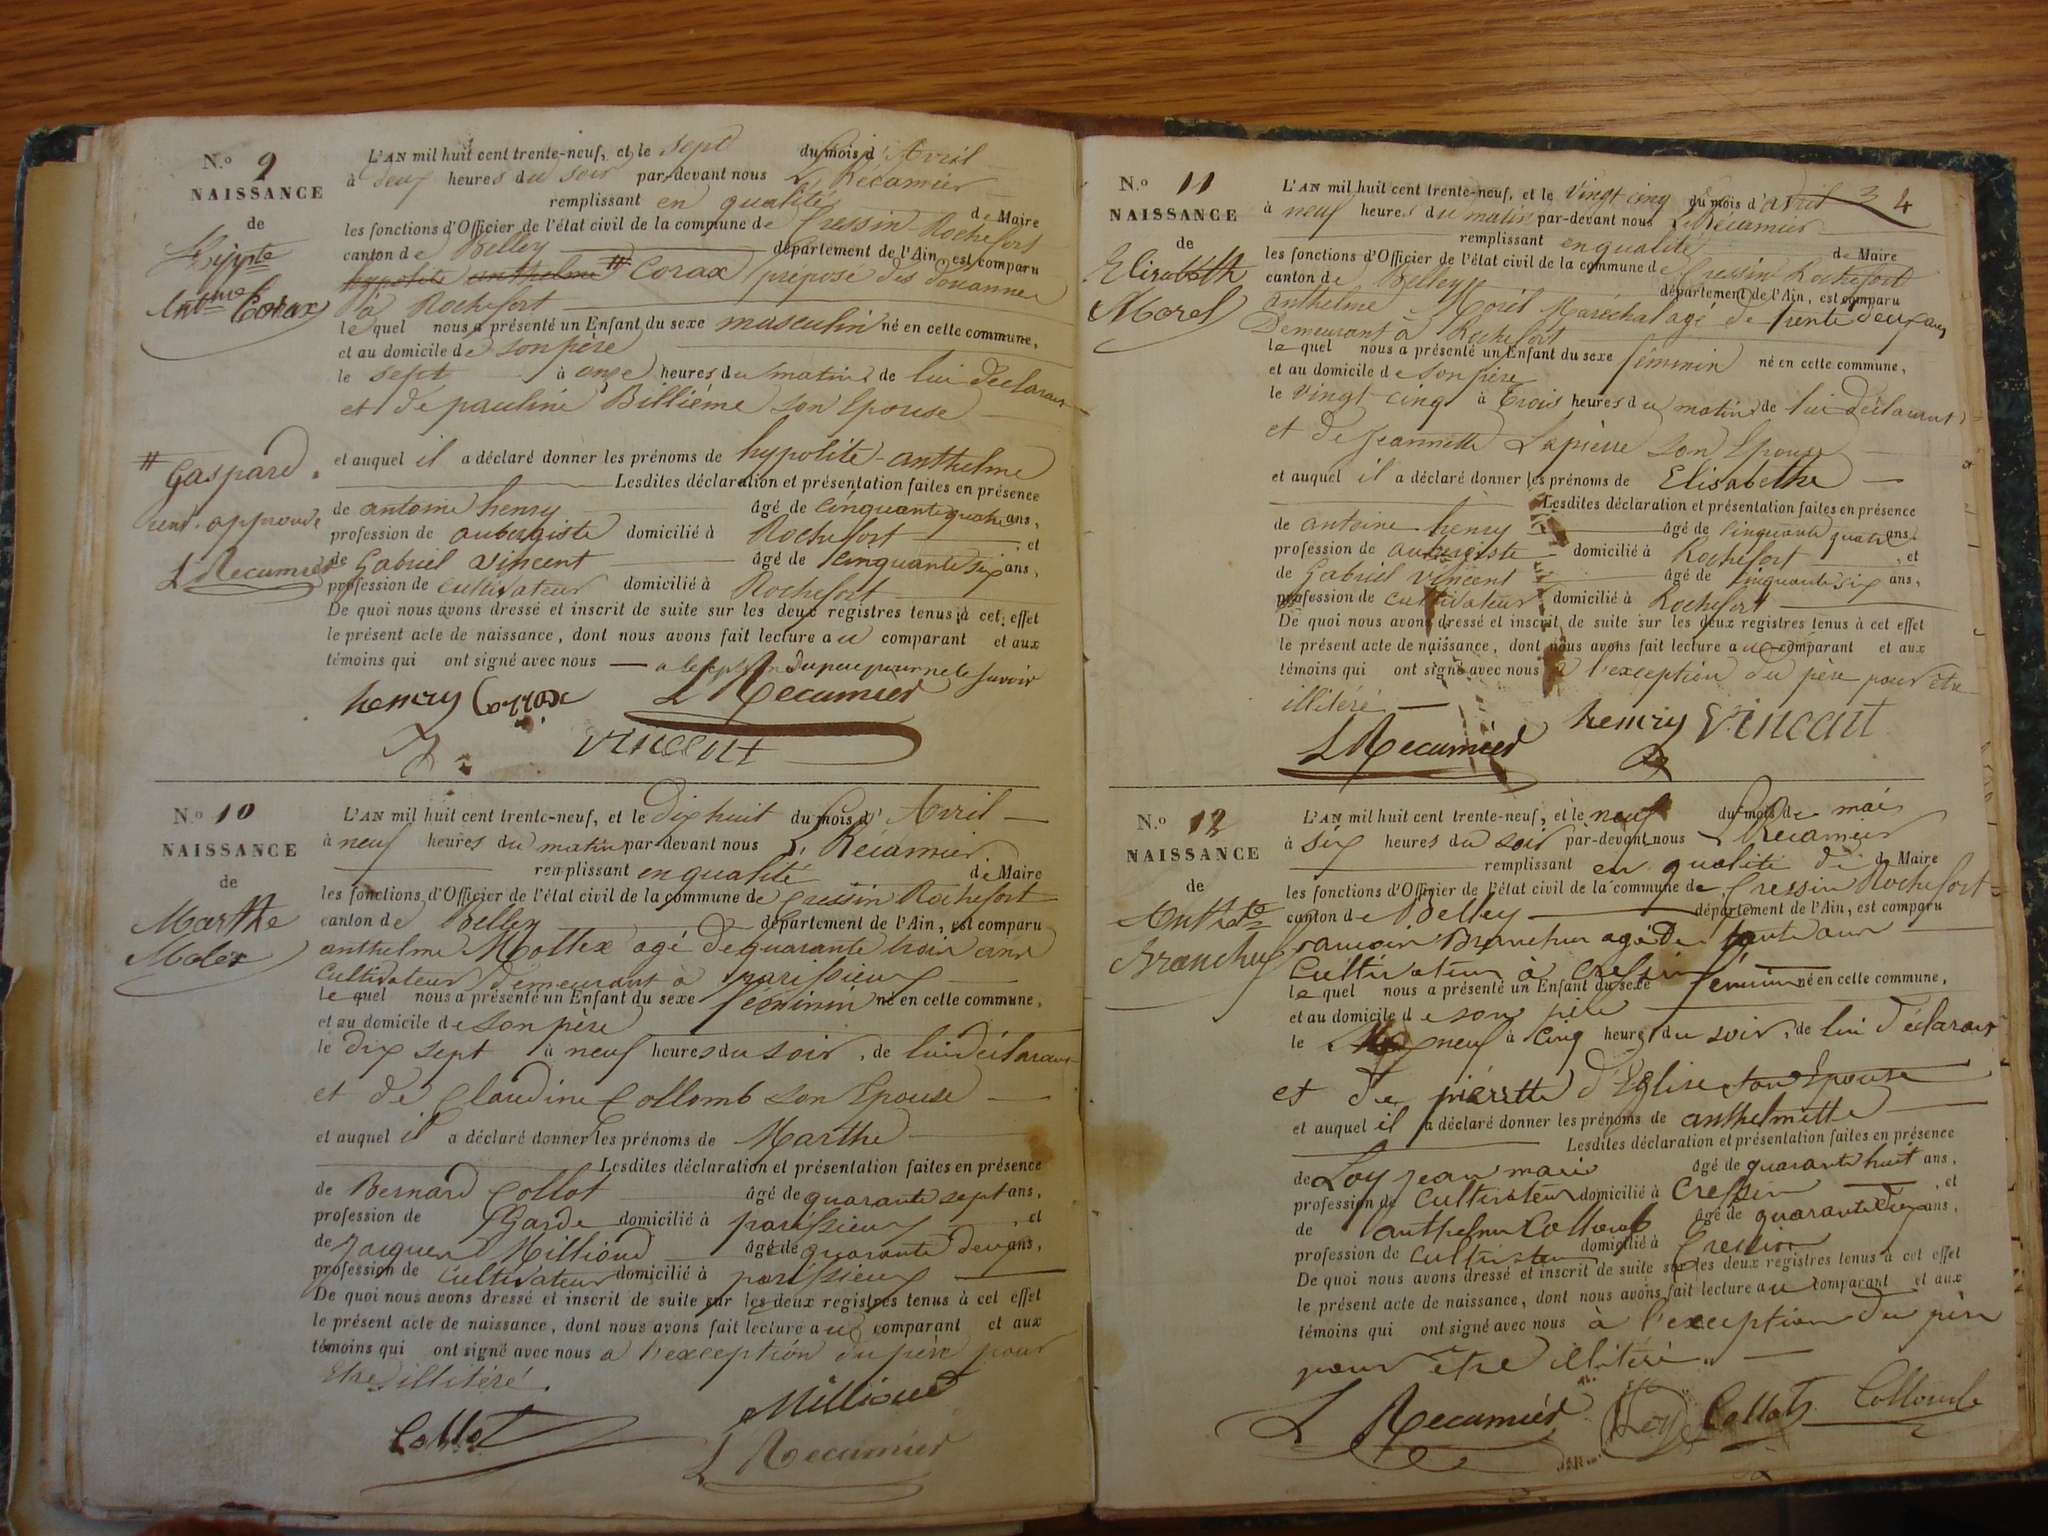 N.o 9
NAISSANCE
de
Hypte
Anthme Corax
L'AN mil huit cent trente-neuf, et le sept du mois d'Avril
à neuf heures du soir par-devant nous L Récamier
remplissant en qualité de Maire
les fonctions d'Officier de l'état civil de la commune de Cressin Rochefort
canton de Belley département de l'Ain, est comparu
hypolite anthelme # Corax préposé des douannes
à Rochefort
le quel nous a présenté un Enfant du sexe masculin né en cette commune,
et au domicile de son père
le sept à onze heures du matin de lui déclarant
et de pauline Billième son Epouse
et auquel il a déclaré donner les prénoms de hypolite-anthelme
Lesdites déclaration et présentation faites en présence
de antoine henry âgé de cinquante quatre ans,
profession de aubergiste domicilié à Rochefort, et
de Gabriel Vincent âgé de cinquante six ans,
profession de cultivateur domicilié à Rochefort
# Gaspard
renv. approuvé
L Recamier
De quoi nous avons dressé et inscrit de suite sur les deux registres tenus à cet effet
le présent acte de naissance, dont nous avons fait lecture au comparant et aux
témoins qui ont signé avec nous a l'exception du père pour ne le savoir
henry Corax L Recamier
Vincent
N.o 10
NAISSANCE
de
Marthe
Molex
L'AN mil huit cent trente-neuf, et le Dix huit du mois d'Avril
à neuf heures du matin par-devant nous L Récamier
remplissant en qualité de Maire
les fonctions d'Officier de l'état civil de la commune de Cressin Rochefort
canton de Belley département de l'Ain, est comparu
anthelme Mollex agé de quarante trois ans
cultivateur demeurant à parissieux
le quel nous a présenté un Enfant du sexe feminin né en cette commune,
et au domicile de son père
le dix sept à neuf heures du soir, de lui déclarant
et de Claudine Collomb son Epouse
et auquel il a déclaré donner les prénoms de Marthe
Lesdites déclaration et présentation faites en présence
de Bernard Collot âgé de quarante sept ans,
profession de Garde domicilié à parissieux, et
de Jacques Millioud âgé de quarante deux ans,
profession de cultivateur domicilié à parissieux
De quoi nous avons dressé et inscrit de suite sur les deux registres tenus à cet effet
le présent acte de naissance, dont nous avons fait lecture au comparant et aux
témoins qui ont signé avec nous a l'exception du père pour
Etre illitéré.
Collot Millioud
L Recamier
3 4
N.o 11
NAISSANCE
de
Elisabeth
Morel
L'AN mil huit cent trente-neuf, et le Vingt cinq du mois d'avril
à neuf heures du matin par-devant nous L Récamier
remplissant en qualité de Maire
les fonctions d'Officier de l'état civil de la commune de Cressin Rochefort
canton de Belley département de l'Ain, est comparu
anthelme Morel Maréchal agé de trente deux ans
Demeurant à Rochefort
le quel nous a présenté un Enfant du sexe féminin né en cette commune,
et au domicile de son père
le vingt cinq à trois heures du matin de lui déclarant
et de Jeannette Lapierre son Epouse
et auquel il a déclaré donner les prénoms de Elisabethe
Lesdites déclaration et présentation faites en présence
de antoine henry âgé de cinquante quatre ans,
profession de aubergiste domicilié à Rochefort, et
de Gabriel Vincent âgé de cinquante six ans,
profession de cultivateur domicilié à Rochefort
De quoi nous avons dressé et inscrit de suite sur les deux registres tenus à cet effet
le présent acte de naissance, dont nous avons fait lecture au comparant et aux
témoins qui ont signé avec nous à l'exception du père pour être
illitéré
henry Vincent
L Recamier
N.o 12
NAISSANCE
de
Anthte
Branchu
L'AN mil huit cent trente-neuf, et le neuf du mois de mai
à six heures du soir par-devant nous L Récamier
remplissant en qualité de de Maire
les fonctions d'Officier de l'état civil de la commune de Cressin Rochefort
canton de Belley département de l'Ain, est comparu
francois Branchu agé De trente ans
Cultivateur à Cressin
le quel nous a présenté un Enfant du sexe féminin né en cette commune,
et au domicile de son père
le neuf à cinq heures du soir, de lui déclarant
et de pierrette d'Eglise son Epouse
et auquel il a déclaré donner les prénoms de anthelmette
Lesdites déclaration et présentation faites en présence
de Loy jean marie âgé de quarante huit ans,
profession de cultivateur domicilié à Cressin, et
de anthelme Collomb âgé de quarante ans,
profession de cultivateur domicilié à Cressin
De quoi nous avons dressé et inscrit de suite sur les deux registres tenus à cet effet
le présent acte de naissance, dont nous avons fait lecture au comparant et aux
témoins qui ont signé avec nous à l'exception du père
pour être illitéré
L Recamier Loy Collot Collomb